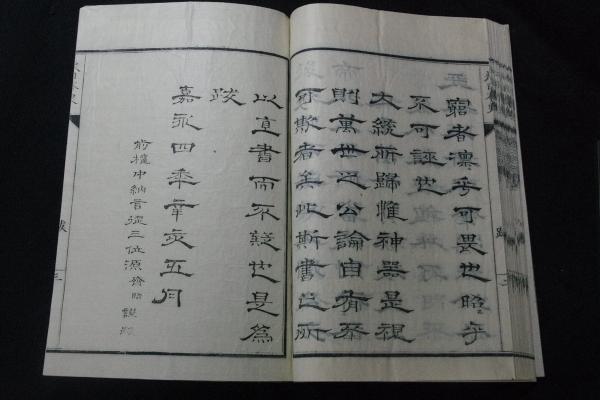 窮者凛乎可畏也昭乎
不可誣也
大統所歸惟神器是視
則萬世之公論自有不
可欺者矣此斯書之所
以直書而不疑也是爲
跋
嘉永四年辛亥五月
前權中納言從三位源齊昭謹跋
跋
三